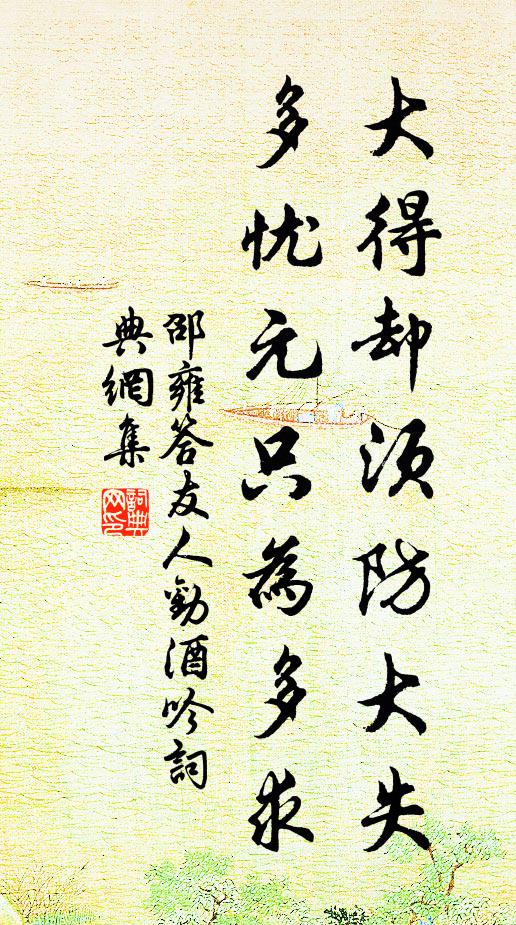 大得却須防大失
多忧元只為多求
邵雍答友人勸酒吟詞
典網集
詞典網印